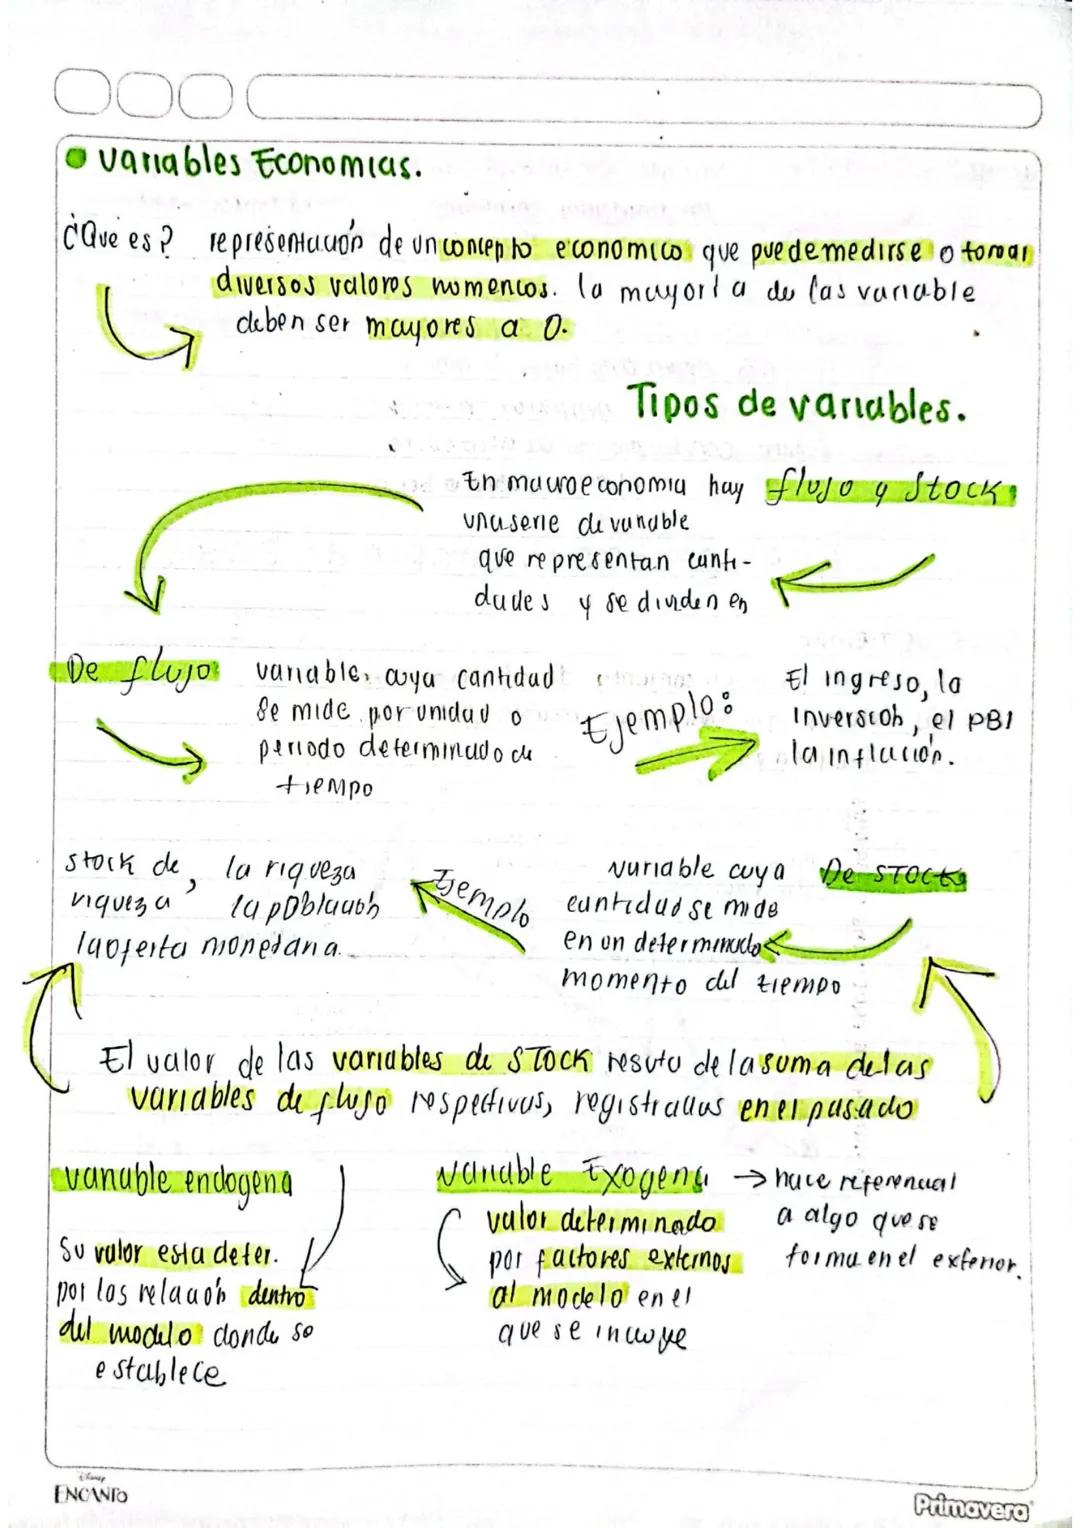 variables Economias.
¿Qué es? representación de un concepto economico que puede medirse o tomar
diversos valores numericos. la mayoria de las variable
deben ser mayores a 0.
Tipos de variables.
En macroeconomia hay flujo y Stock
una serie de variable
que representan canti-
dades y se dividen en
De flujo
variable, cuya cantidad
se mide por unidad o
periodo determinado de
tiempo
Ejemplo:
El ingreso, la
inversion, el PBI
la inflación.
De STOCK
variable cuya
cantidad se mide
en un determinado
momento del tiempo
Ejemplo
stock de, la riqueza
riqueza la población
la oferta monetaria.
El valor de las variables de STOCK resuta de la suma de las
variables de flujo respectivas, registradas en el pasado
variable endogena
Su valor esta deter.
por los relación dentro
del modelo donde se
establece
variable Exogena → hace referencial
valor determinado a algo que se
por factores externos forma en el exterior.
al modelo en el
que se incluye
Disney
ENCANTO
Primavera